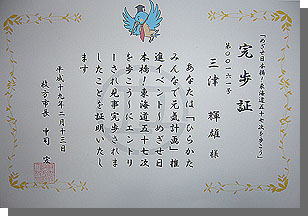 「めざせ日本橋!東海道五十七次を歩こう」
完歩証
第００１６１号
三津 輝雄 様
あなたは「ひらかた
みんなで元気計画」推
進イベント〜めざせ日
本橋！東海道五十七次
を歩こう〜にエントリ
ーされ見事完歩されま
したことを証明いたし
ます
平成十九年二月十三日
枚方市長 中司 宏